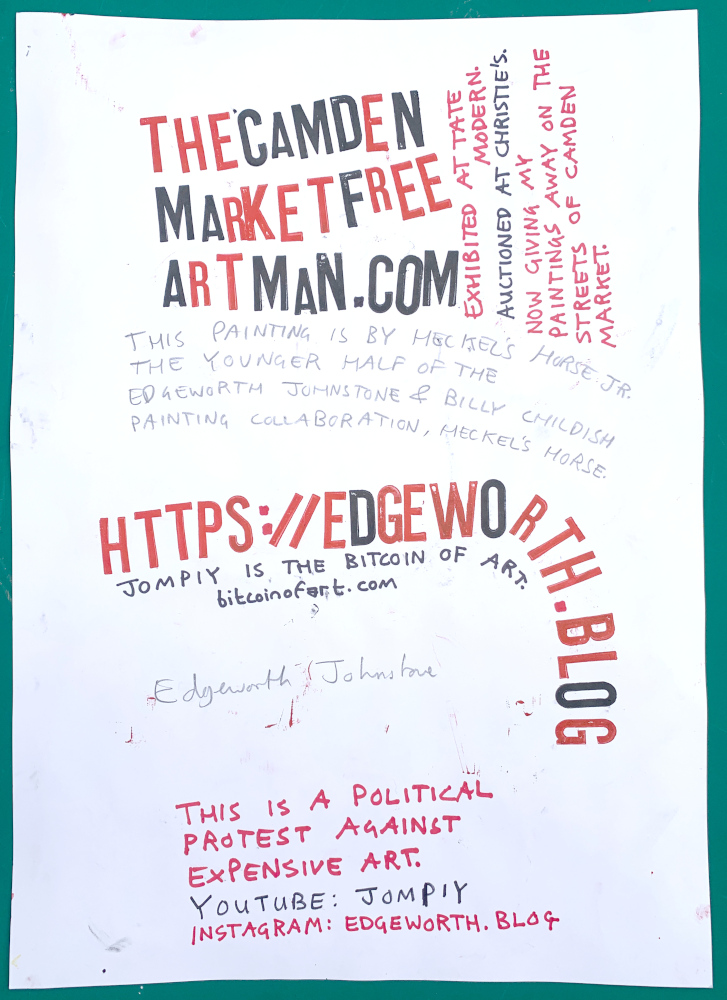 THECAMDEN
MARKETFREE
ARTMAN.COM
EXHIBITED AT TATE
MODERN.
AUCTIONED AT CHRISTIE'S.
NOW GIVING MY
PAINTINGS AWAY ON THE
STREETS OF CAMDEN
MARKET.
THIS PAINTING IS BY HECKEL'S HORSE JR.
THE YOUNGER HALF OF THE
EDGEWORTH JOHNSTONE & BILLY CHILDISH
PAINTING COLLABORATION, HECKEL'S HORSE.
HTTPS://EDGEWORTH.BLOG
JOMPIY IS THE BITCOIN OF ART.
bitcoinofart.com
Edgeworth Johnstone
THIS IS A POLITICAL
PROTEST AGAINST
EXPENSIVE ART.
YOUTUBE: JOMPIY
INSTAGRAM: EDGEWORTH.BLOG